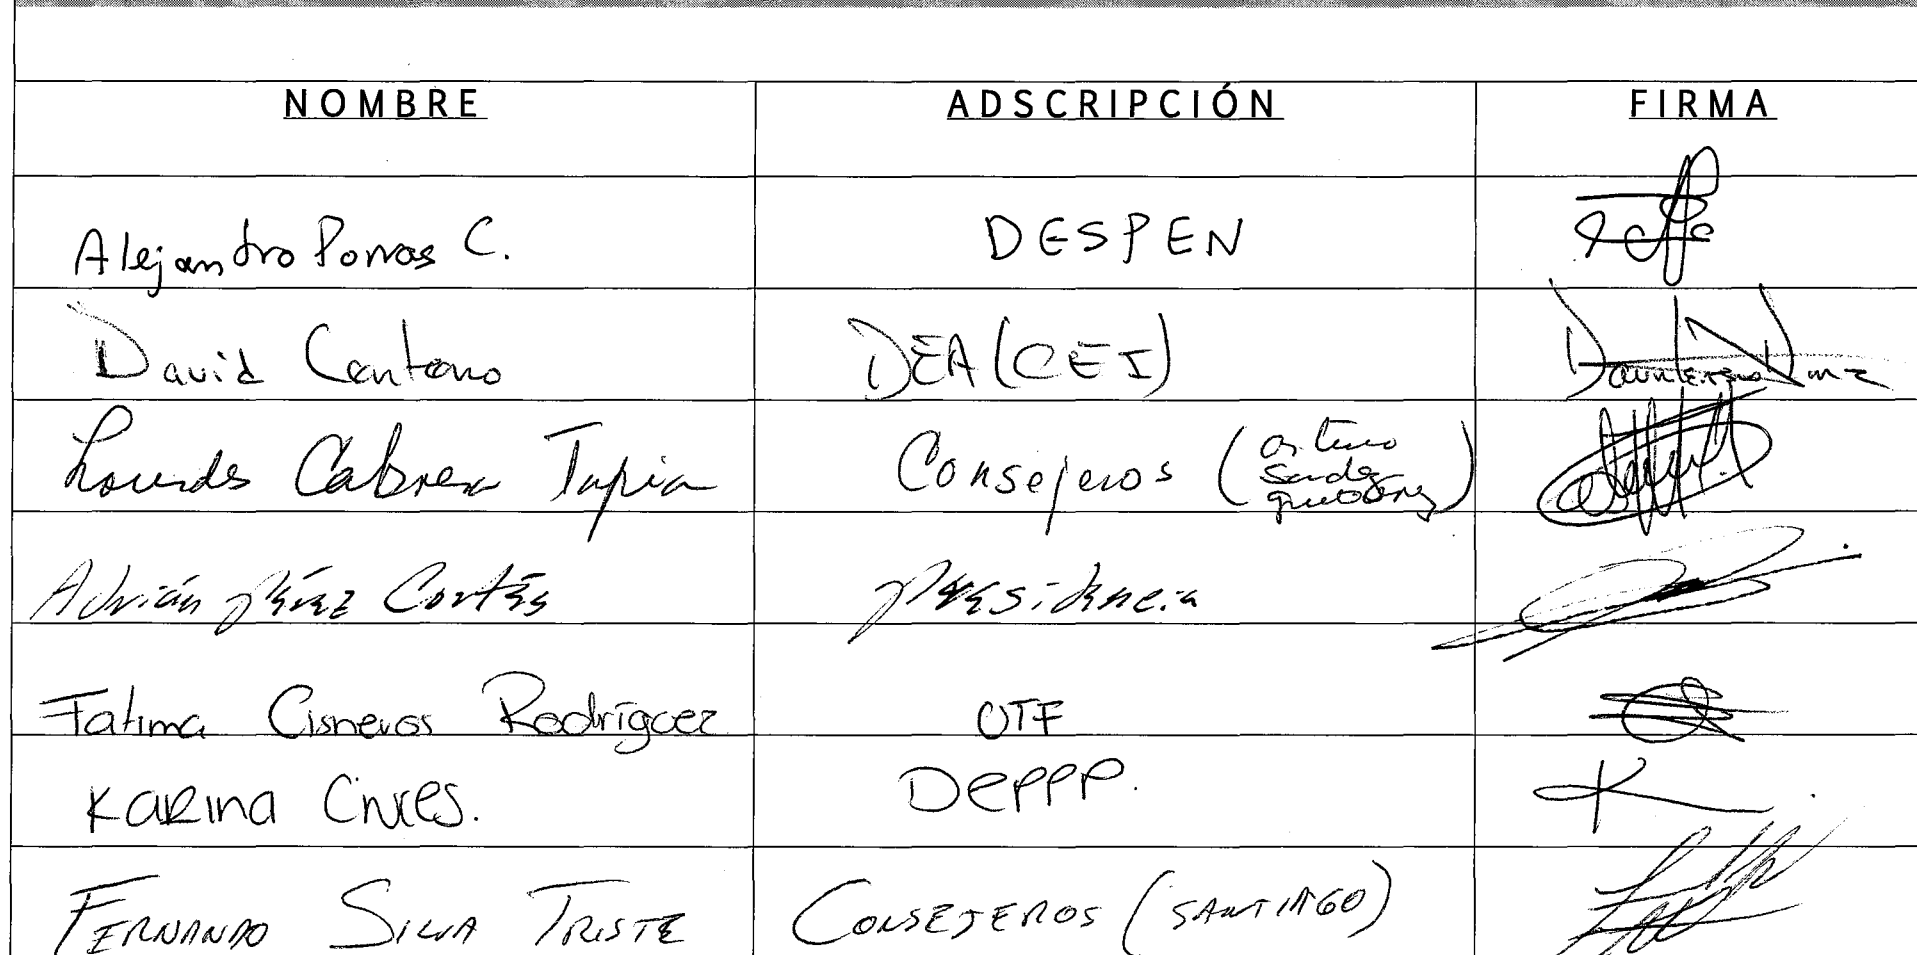 NOMBRE ADSCRIPCIÓN FIRMA
Alejandro Porras C. DESPEN
David Centeno DEA (CEI)
Lourdes Cabrera Tapia Consejeros (Arturo
Sandez
Adrián Pérez Cortés Presidencia
Fatima Cisneros Rodríguez UTF
Karina Cives. DEPPP.
FERNANDO SILVA TRISTE CONSEJEROS (SANTIAGO)